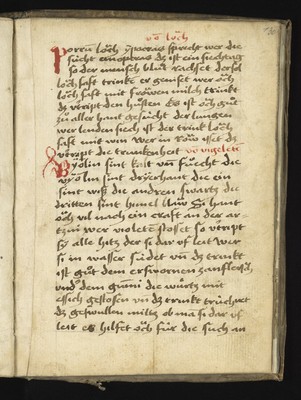 vō lŏch
Porrū lŏch ypocras spricht wer die
sücht emoptoys dz ist ein siechtag
so der mensch blüt rachset der sol
lŏch saft trinkē er geniset wer ŏch
lŏch saft mit frŏwen milch trinkt
dz vtript den hūsten Es ist ŏch güt
zü aller hant gesücht der lungen
wer lenden siech ist der trink lŏch
saft mit win Wer in row isset dz
vtript die trunkenheit vō vigelete
Vyolin sint kalt vn̄ fūecht die
vyolin sint dryerhant die ein
sint wiss die andren swartz die
dritten sint himel blaw Si hant
ŏch vil nach ein craft an der ar-
tznÿ wer violetē stosset so vtript
sÿ alle hitz der si dar vf leit Wer
si in wasser südet vn̄ dz trinkt
ist güt dem erfrornen zanfleisch
vnd dem gumi die würtz mit
essich gestosen vn̄ dz trinkt trüchnet
dz geswullen miltz ob ma si dar vf
leit es hilfet ŏch für die such an